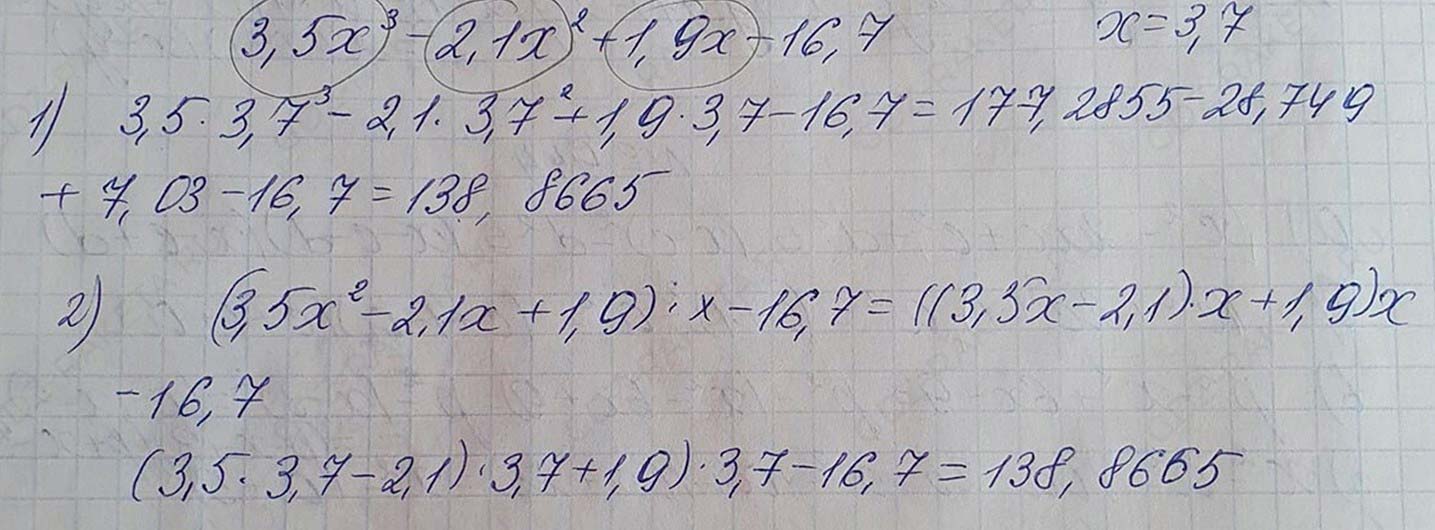 3,5x³ - 2,1x² + 1,9x - 16,7 x = 3,7
1) 3,5 · 3,7³ - 2,1 · 3,7² + 1,9 · 3,7 - 16,7 = 177,2855 - 28,749
+ 7,03 - 16,7 = 138,8665
2) (3,5x² - 2,1x + 1,9) · x - 16,7 = ((3,5x - 2,1) · x + 1,9)x
- 16,7
(3,5 · 3,7 - 2,1) · 3,7 + 1,9) · 3,7 - 16,7 = 138,8665